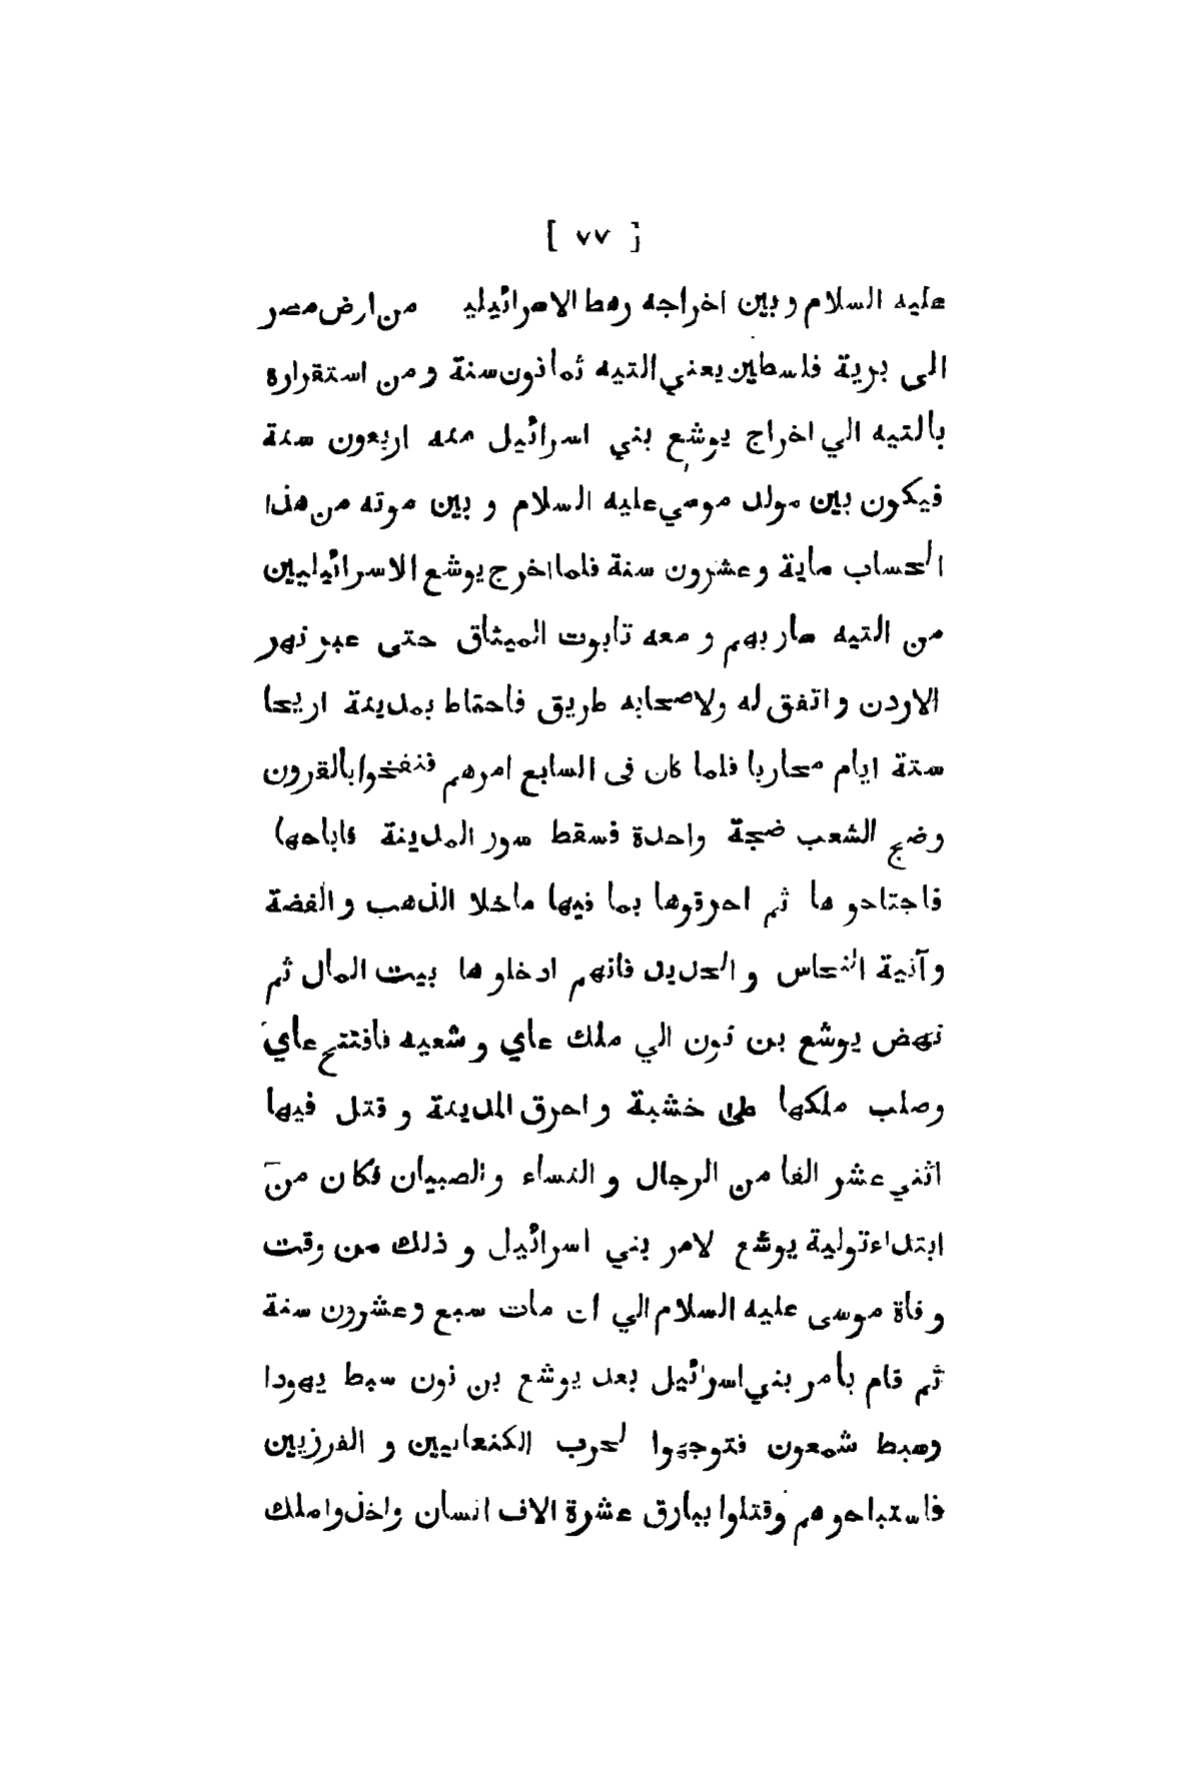 [ ٧٧ ]
عليه السلام و بين اخراجه رهط الاسرائيلي من ارض مصر
الى برية فلسطين يعني التيه ثمانون سنة و من استقراره
بالتيه الي اخراج يوشع بني اسرائيل منه اربعون سنة
فيكون بين مولد موسي عليه السلام و بين موته من هذا
الحساب ماية و عشرون سنة فلما اخرج يوشع الاسرائيليين
من التيه صار بهم و معه تابوت الميثاق حتى عبر نهر
الاردن و اتفق له ولاصحابه طريق فاحتاط بمدينة اريحا
ستة ايام محاربا فلما كان فى السابع امرهم فنفخوا بالقرون
وضج الشعب ضجة واحدة فسقط سور المدينة فاباحها
فاجتاحو ها ثم احرقوها بما فيها ماخلا الذهب و الفضة
و آنية النحاس و الحديد فانهم ادخلو ها بيت المال ثم
نهض يوشع بن نون الي ملك عاي و شعبه فافتتح عاي
وصلب ملكها على خشبة و احرق المدينة و قتل فيها
اثني عشر الفا من الرجال و النساء و الصبيان فكان من
ابتداء تولية يوشع لامر بني اسرائيل و ذلك من وقت
و فاة موسى عليه السلام الي ان مات سبع و عشرون سنة
ثم قام بأمر بني اسرائيل بعد يوشع بن نون سبط يهودا
وسبط شمعون فتوجهوا لحرب الكنعانيين و الفرزيين
فاستباحو هم وقتلوا ببازق عشرة الاف انسان واخذوا ملك